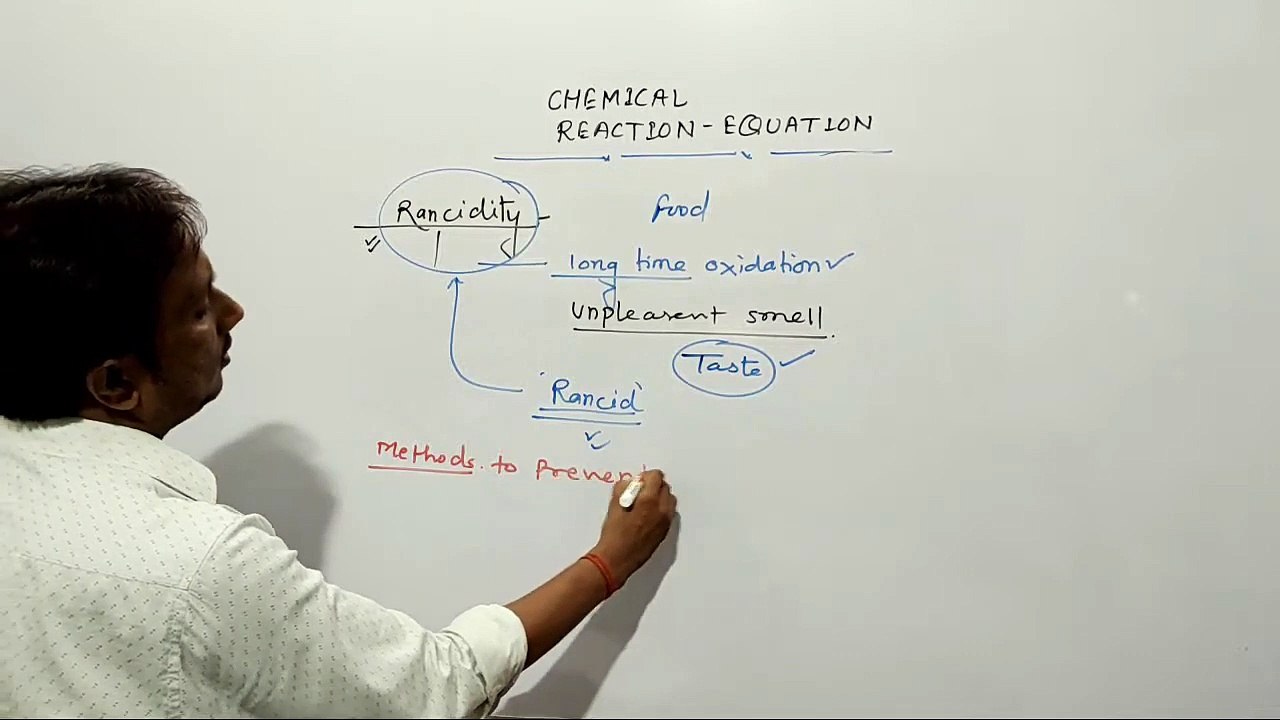 CHEMICAL
REACTION - EQUATION
Rancidity
food
long time oxidation
unpleasent smell
Taste
'Rancid'
Methods to Prevent